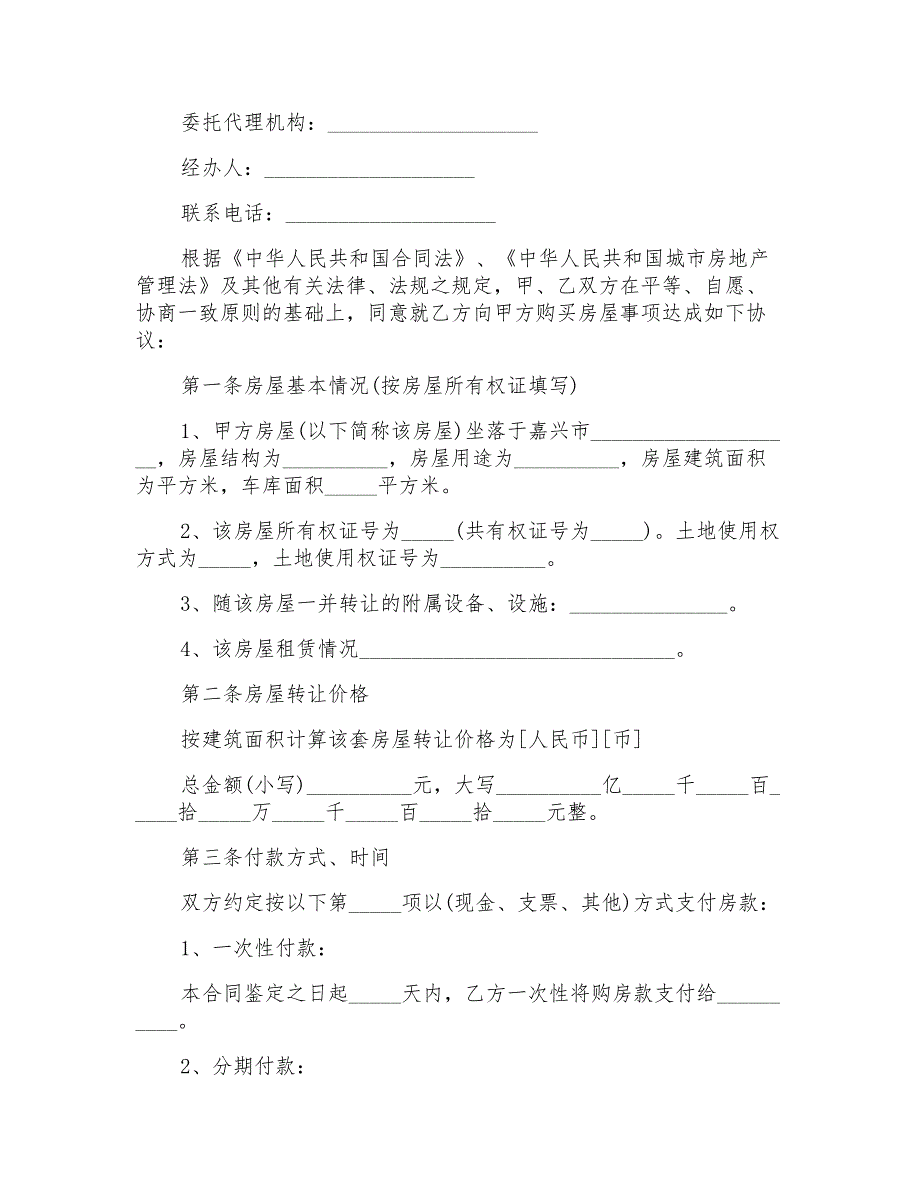 委托代理机构：____________________
经办人：____________________
联系电话：____________________
根据《中华人民共和国合同法》、《中华人民共和国城市房地产
管理法》及其他有关法律、法规之规定，甲、乙双方在平等、自愿、
协商一致原则的基础上，同意就乙方向甲方购买房屋事项达成如下协
议：
第一条房屋基本情况(按房屋所有权证填写)
1、甲方房屋(以下简称该房屋)坐落于嘉兴市__________________
__，房屋结构为__________，房屋用途为__________，房屋建筑面积
为平方米，车库面积_____平方米。
2、该房屋所有权证号为_____(共有权证号为_____)。土地使用权
方式为_____，土地使用权证号为__________。
3、随该房屋一并转让的附属设备、设施：_______________。
4、该房屋租赁情况______________________________。
第二条房屋转让价格
按建筑面积计算该套房屋转让价格为[人民币][币]
总金额(小写)__________元，大写__________亿_____千_____百_
____拾_____万_____千_____百_____拾_____元整。
第三条付款方式、时间
双方约定按以下第_____项以(现金、支票、其他)方式支付房款：
1、一次性付款：
本合同鉴定之日起_____天内，乙方一次性将购房款支付给______
____。
2、分期付款：